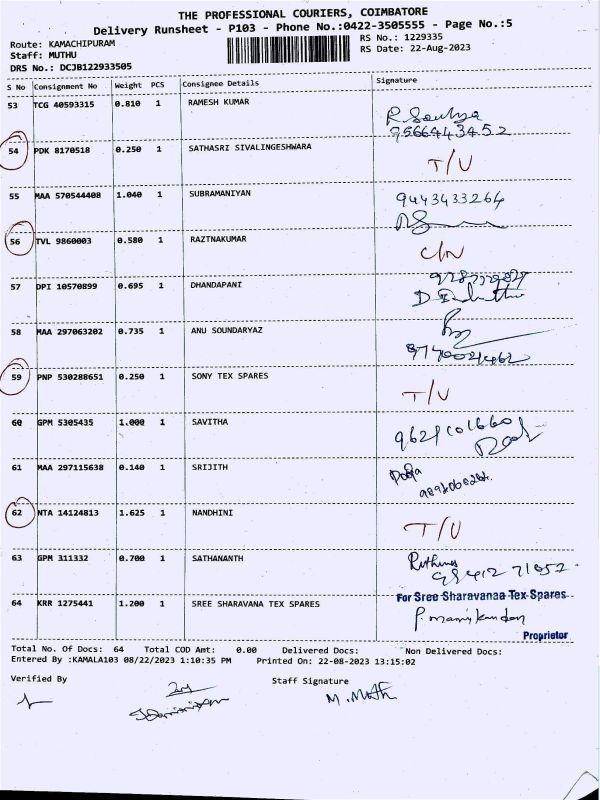 THE PROFESSIONAL COURIERS, COIMBATORE
Delivery Runsheet - P103 - Phone No.:0422-3505555 - Page No.:5
Route: KAMACHIPURAM
RS No.: 1229335
Staff: MUTHU
RS Date: 22-Aug-2023
DRS No.: DCJB122933505
S No Consignment No Weight PCS Consignee Details Signature
53 TCG 40593315 0.810 1 RAMESH KUMAR
9566443452
54 PDK 8170518 0.250 1 SATHASRI SIVALINGESHWARA T/U
55 MAA 570544408 1.040 1 SUBRAMANIYAN 9443433264
56 TVL 9860003 0.580 1 RAZTNAKUMAR C/N
57 DPI 10570899 0.695 1 DHANDAPANI
58 MAA 297063202 0.735 1 ANU SOUNDARYAZ
59 PNP 530288651 0.250 1 SONY TEX SPARES T/U
60 GPM 5305435 1.000 1 SAVITHA
61 MAA 297115638 0.140 1 SRIJITH
62 NTA 14124813 1.625 1 NANDHINI T/U
63 GPM 311332 0.700 1 SATHANANTH
64 KRR 1275441 1.200 1 SREE SHARAVANA TEX SPARES For Sree Sharavanaa Tex Spares
P. Manikandan
Proprietor
Total No. Of Docs: 64 Total COD Amt: 0.00 Delivered Docs: Non Delivered Docs:
Entered By :KAMALA103 08/22/2023 1:10:35 PM Printed On: 22-08-2023 13:15:02
Verified By Staff Signature
M. Muth